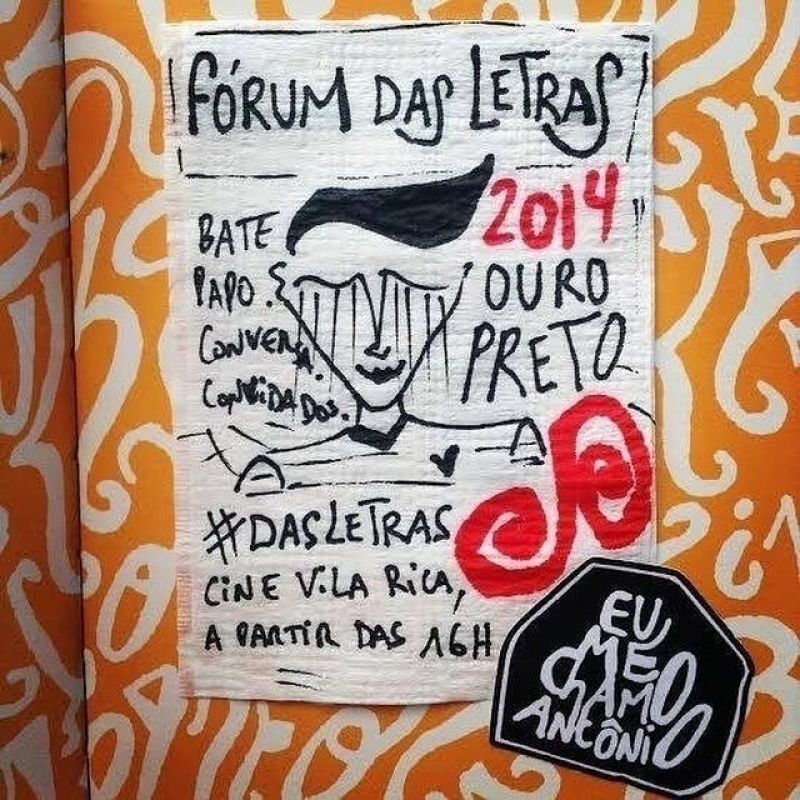 FÓRUM DAS LETRAS
2014
BATE
PAPO.
CONVERSA.
CONVIDADOS.
OURO
PRETO
#DASLETRAS
CINE VILA RICA,
A PARTIR DAS 16H
EU
ME
CHAMO
ANTÔNIO